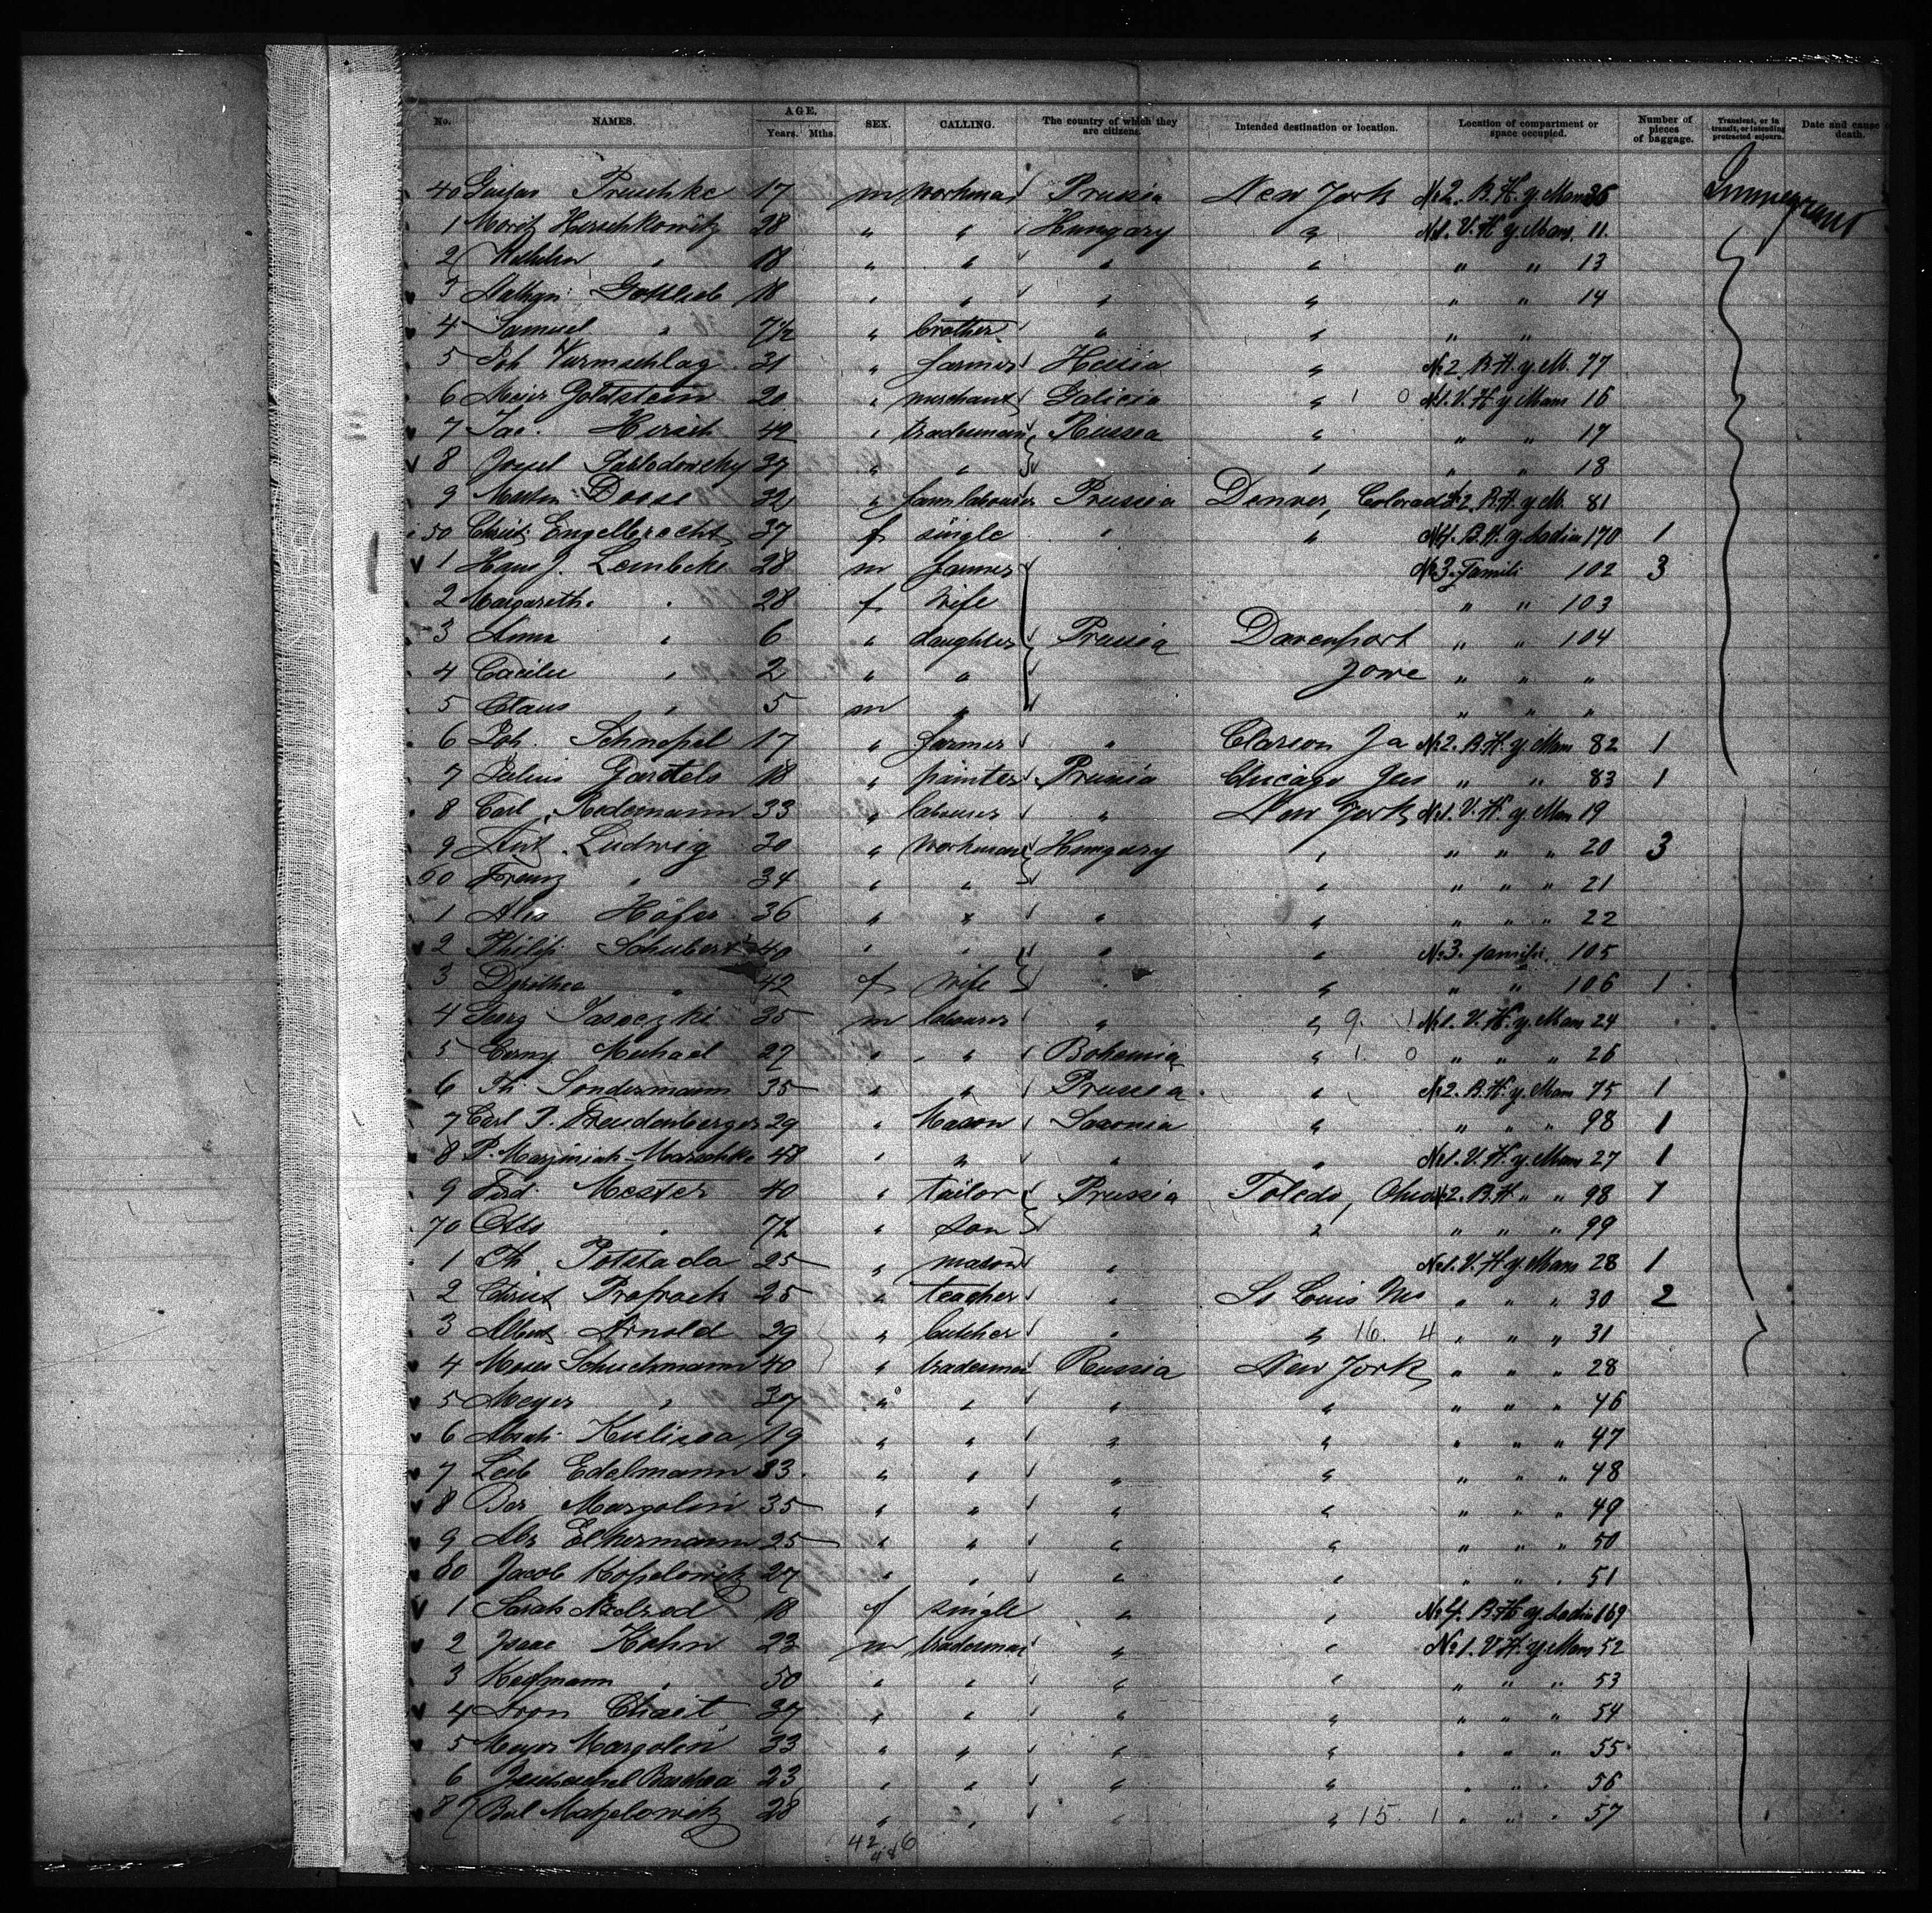 No. NAMES. AGE. Years. Mths. SEX. CALLING. The country of which they are citizens. Intended destination or location. Location of compartment or space occupied. Number of pieces of baggage. Transient, or in transit, or intending protracted sojourn. Date and cause of death.
40 Gustav Pruschke 17 m workman Prussia New York No 2. B. H. y. Man 36
1 Moritz Herschkowitz 28 " " Hungary " No 1. V. H y Man. 11
2 " 18 " " " " " " 13
3 Nathan Gottlieb 18 " " " " " " 14
4 Samuel " 7 1/2 " brother " " " "
5 Joh Wurmschlag 31 " farmer Hessia " No 2 B. H. y. M. 77
6 Meier Goldstein 20 " merchant Galicia " 1 0 No 1. V. H y Man 16
7 Jac. Hirsch 42 " tradesman Russia " " " 17
8 Jossel 37 " " " " " 18
9 Martin Dosse 32 " farm labourer Prussia Denver, Colorado No 2. B. H. y M. 81
50 Christ. Engelbrecht 37 f single " " No 4. B. H. y. Ladies 170 1
1 Hans J. Lembcke 28 m farmer No 3. Famili 102 3
2 Margareth. " 28 f wife " " 103
3 Anna " 6 " daughter Prussia Davenport " " 104
4 Cacilie " 2 " " Jowe " " "
5 Claus " 5 m " " " "
6 Joh. Schnepel 17 " farmer " Clarion Ja No 2. B. H. y Man 82 1
7 Julius Garstels 18 " painter Prussia Chicago " " 83 1
8 Carl Redemann 33 " labourer " New York No 1. V. H. y. Man 19
9 Ant. Ludwig 30 " workman Hungary " " " " 20 3
60 Franz " 34 " " " " " " 21
1 Alex Höfer 36 " " " " " " " 22
2 Philip Schubert 40 " " " " No 3. famili 105
3 Dorothea " 42 f wife " " " " 106 1
4 Georg 35 m labourer " " 9. 1 No 1. V. H. y. Man 24
5 Cerny Michael 27 " " Bohemia " 1. 0 " " " 26
6 Th. Sondermann 35 " " Prussia " No 2. B. H. y. Man 75 1
7 Carl J. Freudenberger 29 " Mason Saxonia " " " " 98 1
8 P. Marschke 48 " " " " No 1. V. H. y. Man 27 1
9 Ferd. Mester 40 " tailor Prussia Toledo, Ohio No 2. B. H " " 98 1
70 Otto " 7 1/2 " son " " " " 99
1 Th. Potstada 25 " mason " No 1. V. H y. Man 28 1
2 Christ Profrock 25 " teacher " St Louis Mo " " " 30 2
3 Albert Arnold 29 " butcher " " 16. 4 " " " 31
4 Moses Schuchmann 40 " tradesman Russia New York " " " 28
5 Meyer " 37 " " " " " " " 46
6 Abrah. 19 " " " " " " " 47
7 Leib Edelmann 33 " " " " " " " 48
8 Ber Margolin 35 " " " " " " " 49
9 Abr Elkermann 25 " " " " " " " 50
80 Jacob Kopelowitz 27 " " " " " " " 51
1 Sarah 18 f single " " No 4. B. H y. Ladies 169
2 Isaac Kahn 23 m tradesman " " No 1. V. H. y. Man 52
3 " 50 " " " " " " " 53
4 Aron Chait 27 " " " " " " " 54
5 Meyer Margolin 33 " " " " " " " 55
6 23 " " " " " " " 56
87 28 " " " " 15. 1 " " " 57
42 6